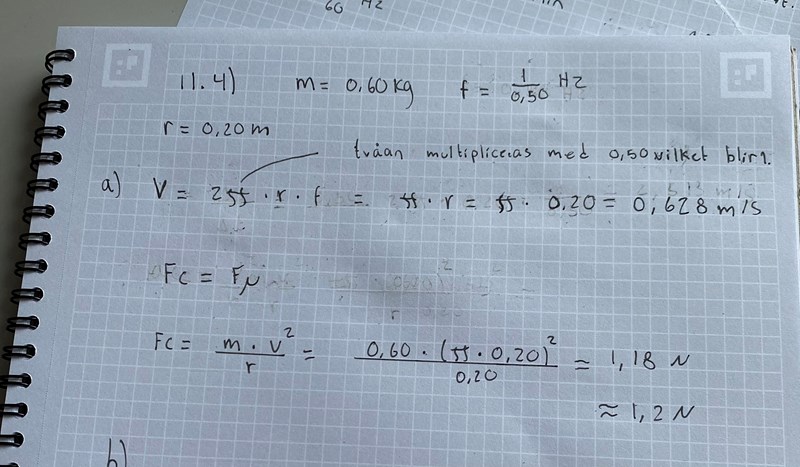 60 Hz
11.4) m = 0,60 kg f = 1/0,50 Hz
r = 0,20 m
tvåan multipliceras med 0,50 vilket blir 1.
a) V = 2π · r · f = π · r = π · 0,20 = 0,628 m/s
Fc = Fμ
Fc = m · v²/r = 0,60 · (π · 0,20)²/0,20 = 1,18 N
≈ 1,2 N
b)